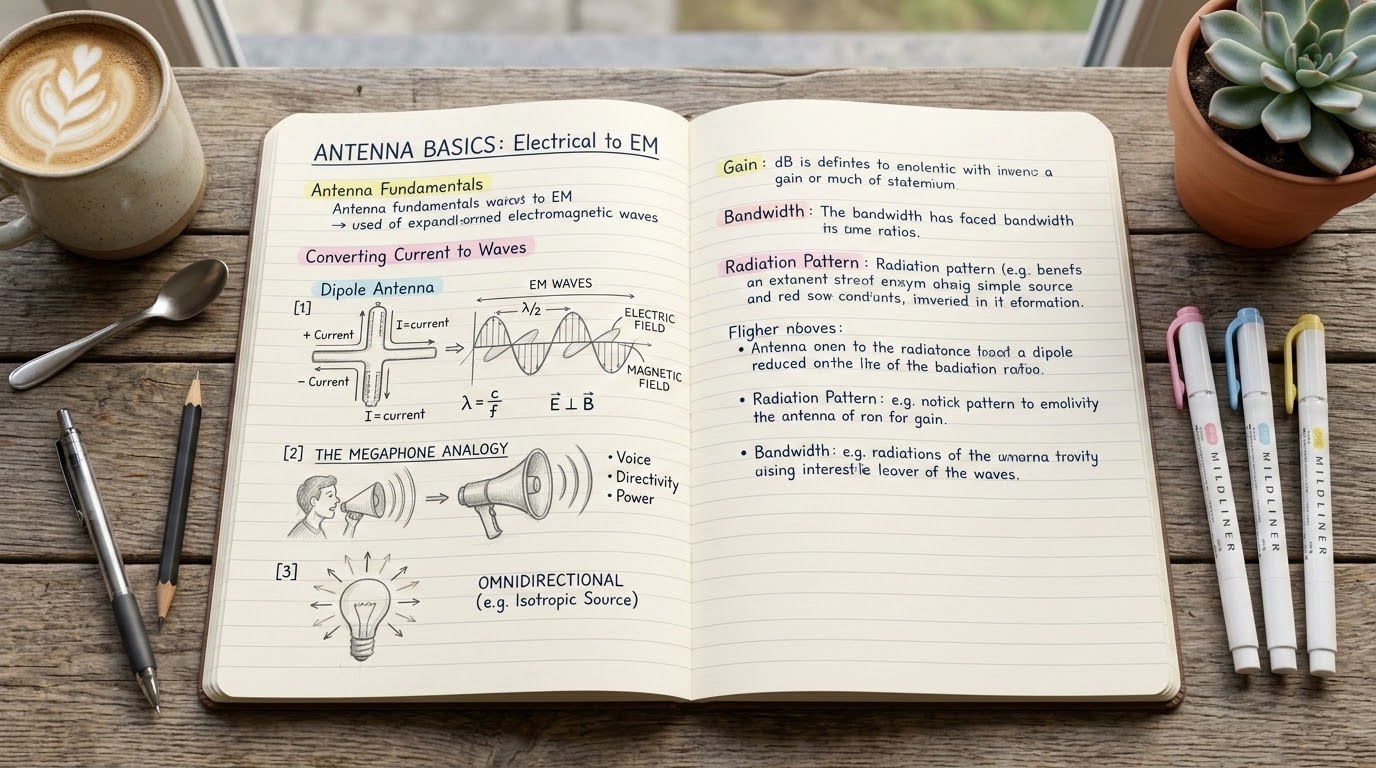 ANTENNA BASICS: Electrical to EM
Antenna Fundamentals
Antenna fundamentals to EM
→ used of electromagnetic waves
Converting Current to Waves
Dipole Antenna
[1]
+ Current
I=current
- Current
I=current
EM WAVES
λ/2
ELECTRIC
FIELD
MAGNETIC
FIELD
λ = c/f
E⃗ ⊥ B⃗
[2] THE MEGAPHONE ANALOGY
• Voice
• Directivity
• Power
[3]
OMNIDIRECTIONAL
(e.g. Isotropic Source)
Gain: dB is defintes to enolentic with a
gain or much of statemium
Bandwidth: The bandwidth has faced bandwidth
ratios.
Radiation Pattern: Radiation pattern (e.g. benefs
an extanent of simple source
and red sow in it
Fligher
• Antenna onen to the a dipole
reduced the of the
• Radiation Pattern: e.g. notick pattern to emolivity
the antenna of ron for gain.
• Bandwidth: e.g. radiations of the trovity
aising of the waves.
MILDLINER
MILDLINER
MILDLINER